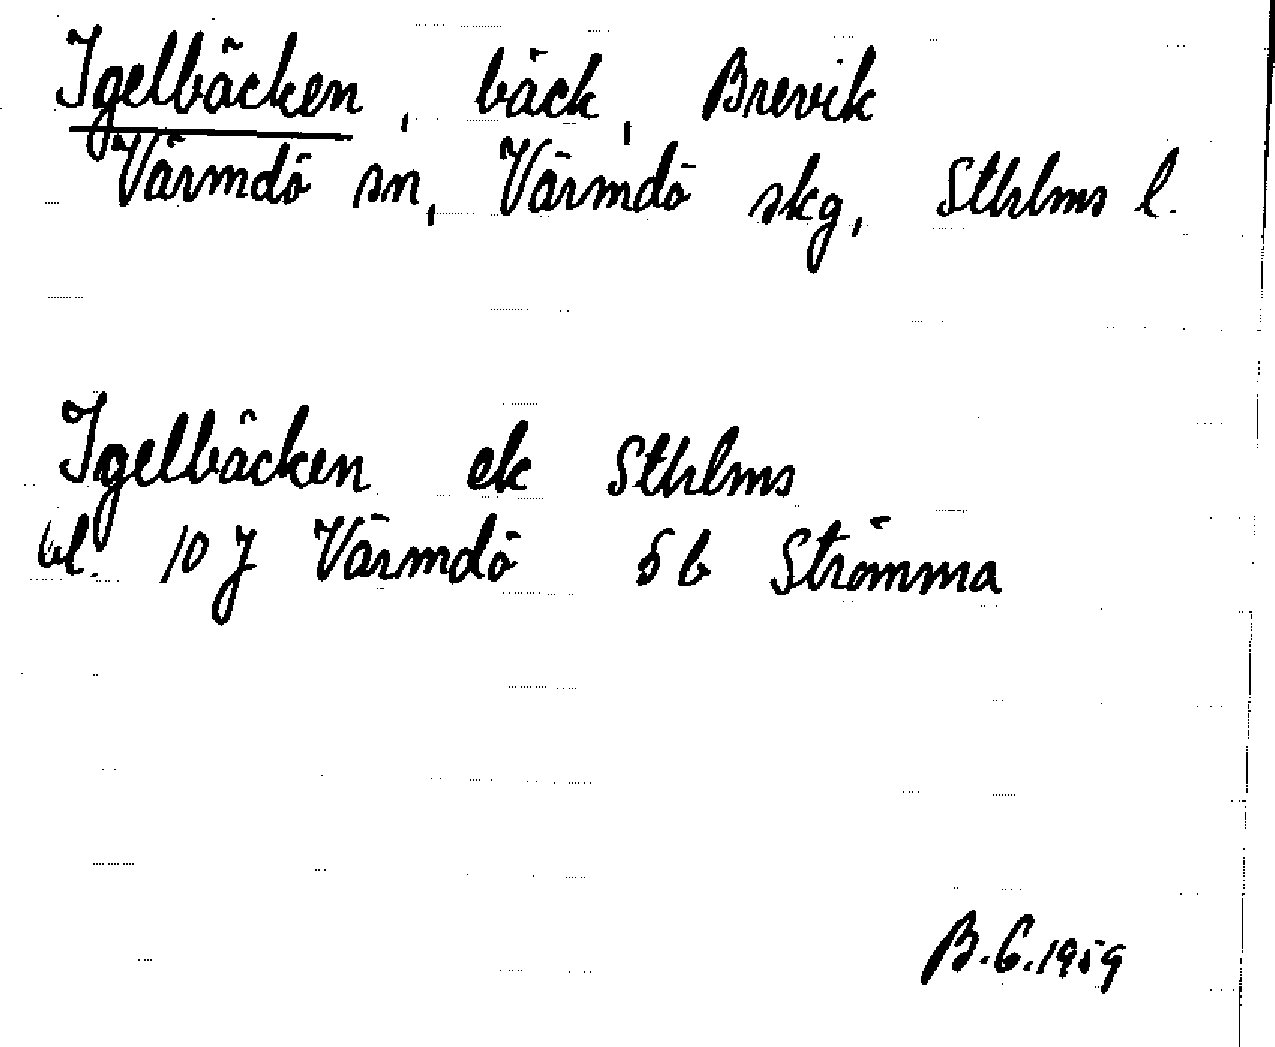 Igelbäcken, bäck, Brevik
Värmdö sn, Värmdö skg, Sthlms l.
Igelbäcken ek Sthlms
bl. 10 J Värmdö 5 b Strömma
B.G.1959